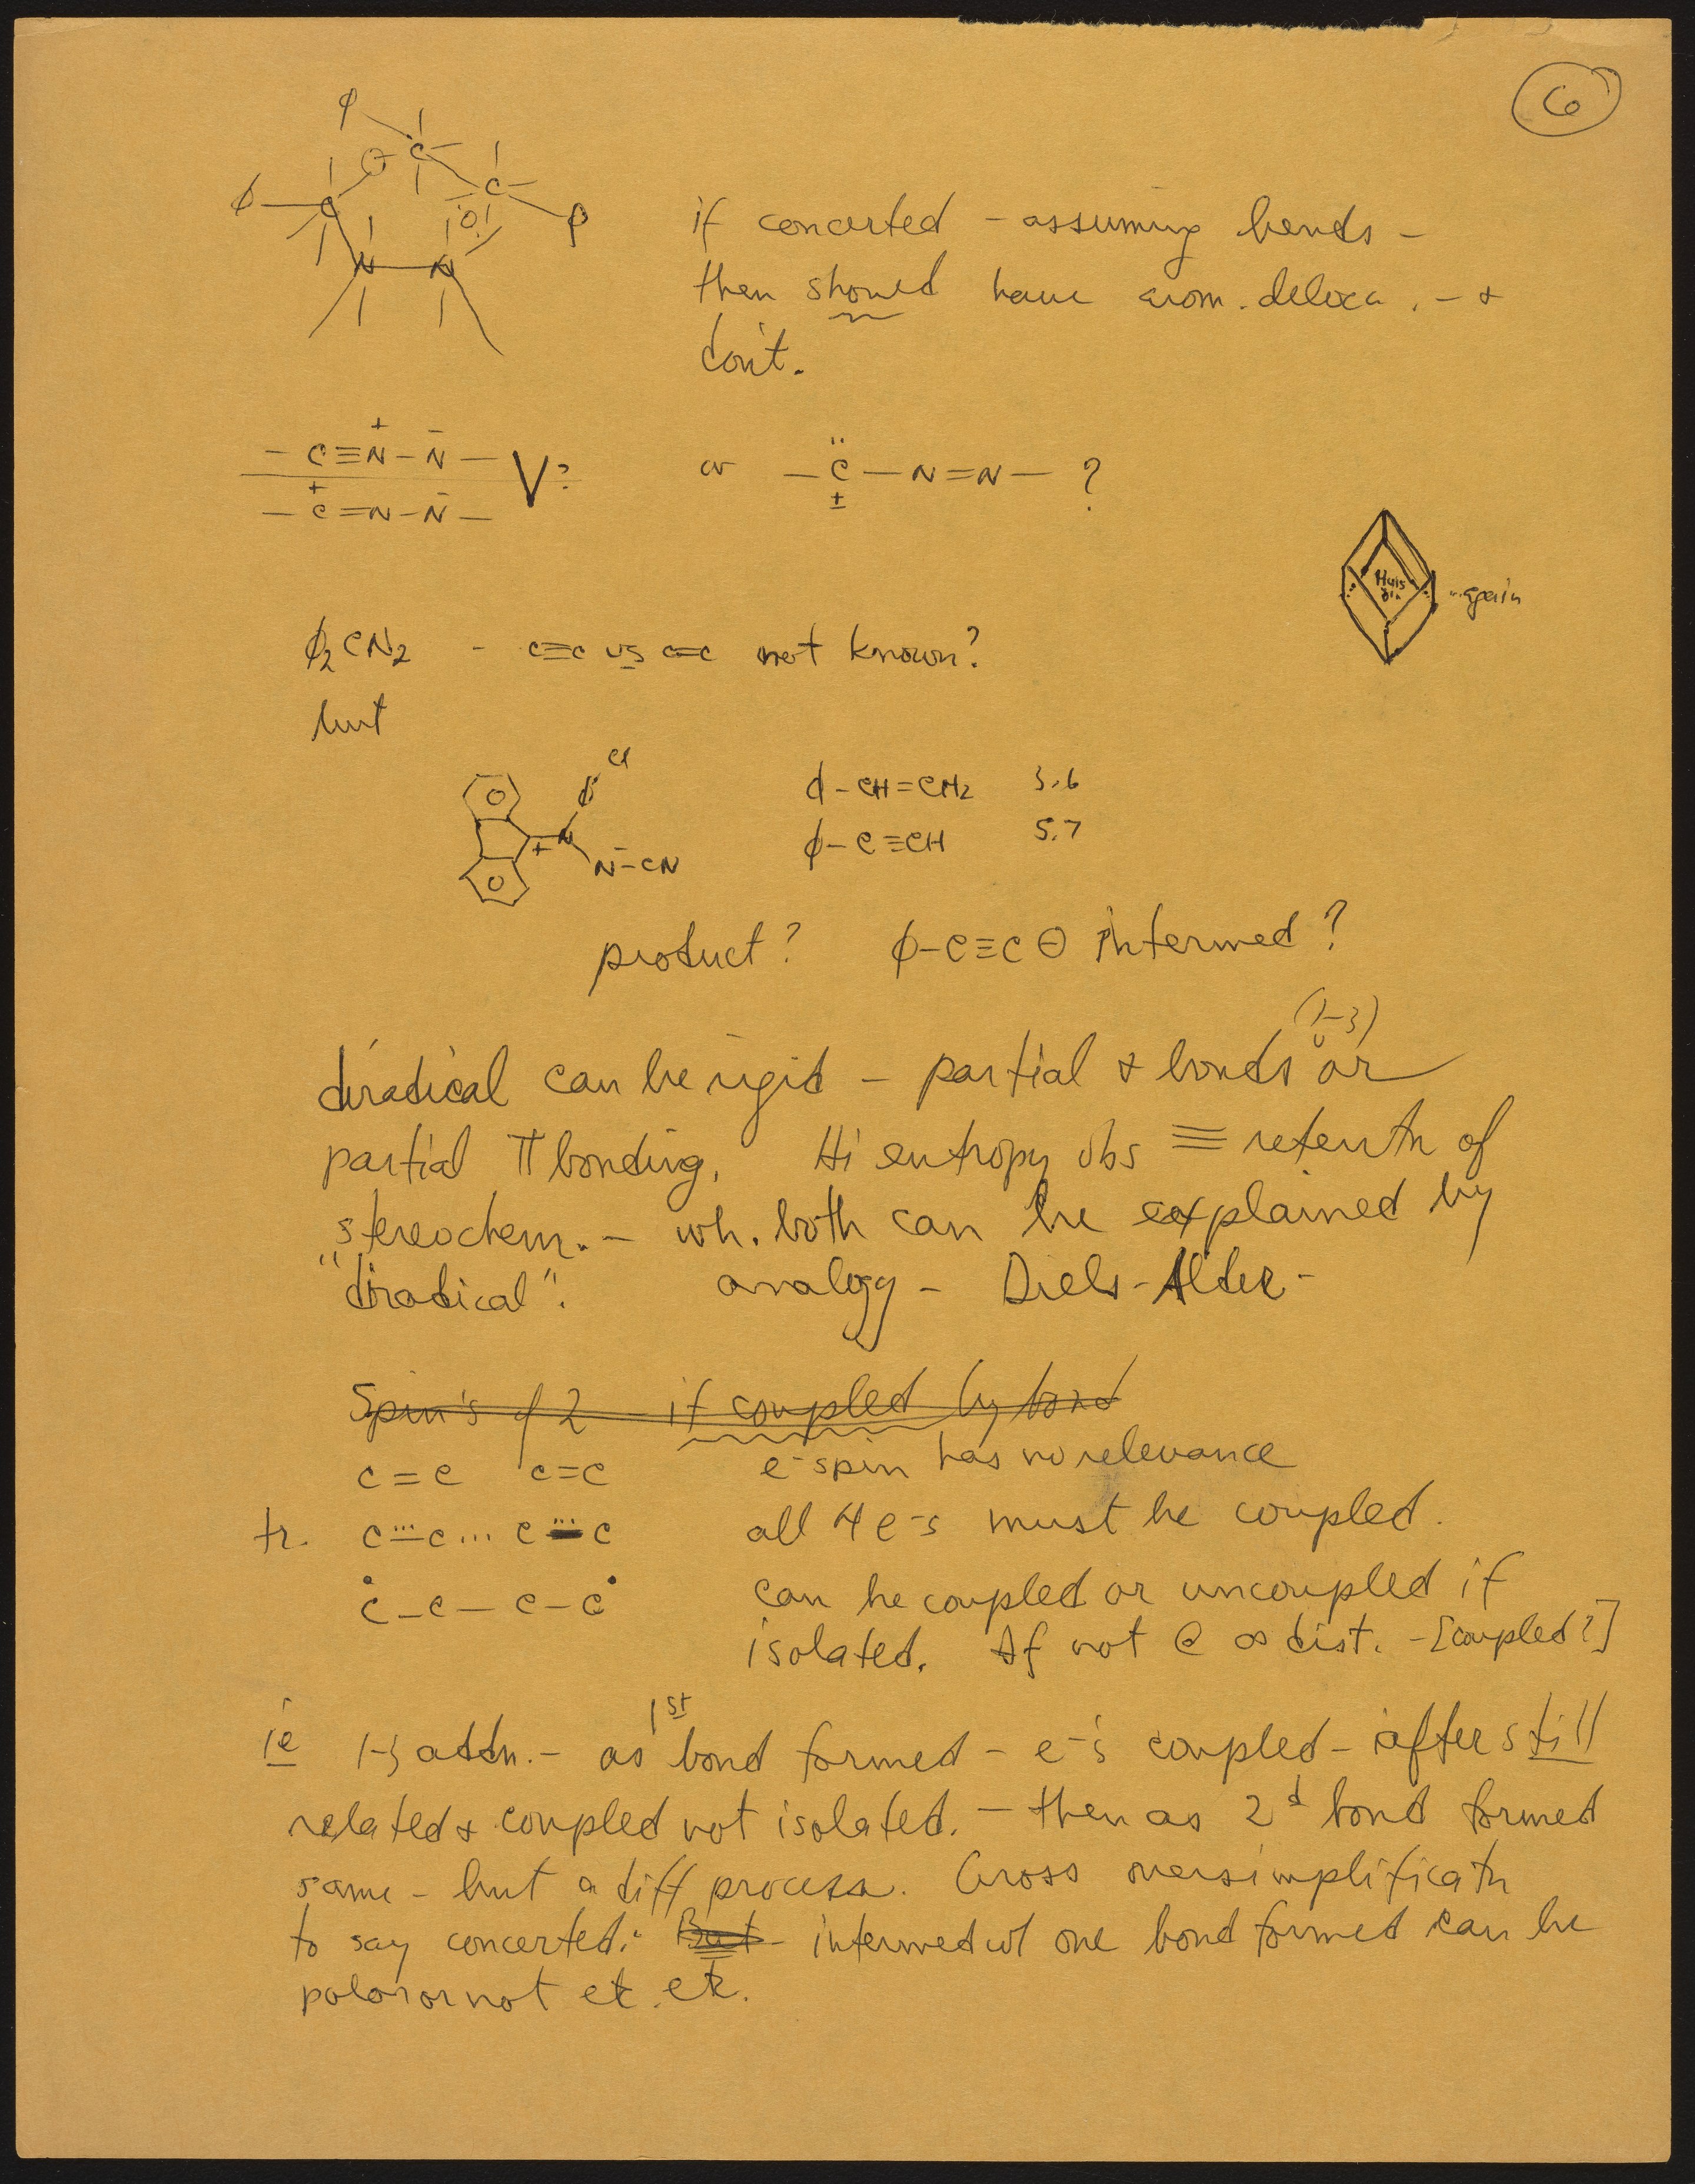 6
φ C C φ
φ C
N — N
if concerted - assuming bends -
then should have arom. deloca. - &
don't.
- C≡N⁺-N⁻ - V? or - C̈ - N=N - ?
- C⁺=N-N⁻ - ±
Huis
gin - again
φ₂CN₂ - C≡C vs C=C not known?
but
Cl
φ
N
+
N⁻-CN
φ-CH=CH₂ 3.6
φ-C≡CH 5.7
product? φ-C≡C⊖ intermed?
(1-3)
diradical can be rigid - partial & bonds or
partial π bonding. Hi entropy obs ≡ retentn of
stereochem. - wh. both can be explained by
"diradical". analogy - Diels-Alder -
Spin's of 2 if coupled by bond
C=C C=C e⁻ spin has no relevance
tr. C⋯C ... C⋯C all 4 e⁻s must be coupled.
Ċ-C-C-Ċ can be coupled or uncoupled if
isolated. If not @ ∞ dist. - [coupled?]
ie 1-3 addn. - as 1st bond formed - e⁻'s coupled - after still
related & coupled not isolated. - then as 2d bond formed
same - but a diff process. Gross oversimplificatn
to say concerted. But intermed w/ one bond formed can be
polar or not etc. etc.